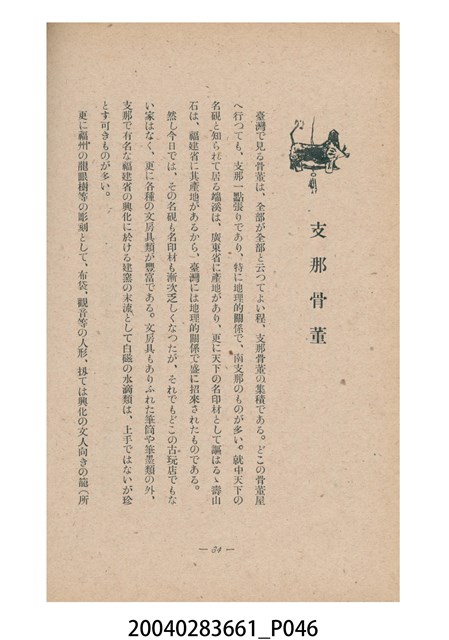 支那骨董
臺灣で見る骨董は、全部が全部と云つてよい程、支那骨董の集積である。どこの骨董屋
へ行つても、支那一點張りであり、特に地理的關係で、南支那のものが多い。就中天下の
名硯と知られて居る端溪は、廣東省に產地があり、更に天下の名印材として謳はるゝ壽山
石は、福建省に其產地があるから、臺灣には地理的關係で盛に招來されたものである。
然し今日では、その名硯も名印材も漸次乏しくなつたが、それでもどこの古玩店でもな
い家はなく、更に各種の文房具類が豐富である。文房具もありふれた筆筒や筆墨類の外、
支那で有名な福建省の興化に於ける建窯の末流として白磁の水滴類は、上手ではないが珍
とす可きものが多い。
更に福州の龍眼樹等の彫刻として、布袋、觀音等の人形、扨ては興化の文人向きの籠（所
— 34 —
20040283661_P046